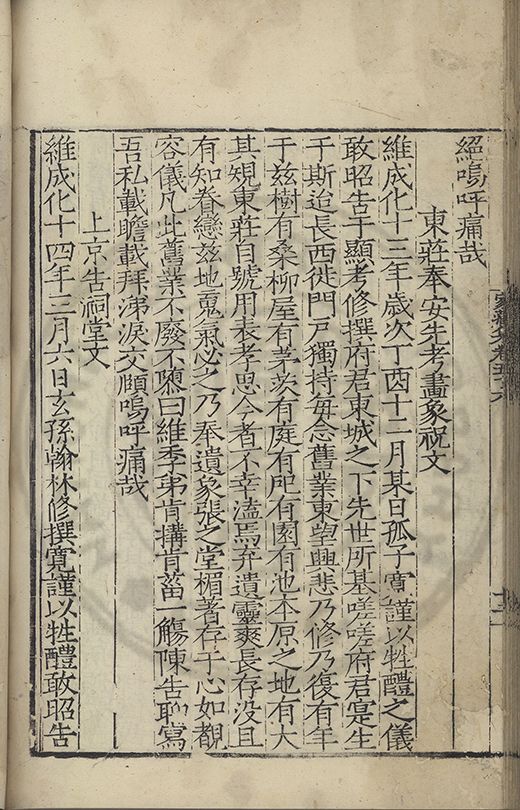 絕嗚呼痛哉
東莊奉安先考畫象祝文
維成化十三年歲次丁酉十二月某日孤子寬謹以牲醴之儀
敢昭告于顯考修撰府君東城之下先世所基嗟嗟府君寔生
于斯迨長西徙門戶獨持每念舊業東望興悲乃修乃復有年
于茲樹有桑柳屋有茅茨有庭有阤有園有池本原之地有大
其規東莊自號用表孝思今者不幸溘焉弃遺靈爽長存没且
有知眷戀兹地䰟氣必之乃奉遺象張之堂楣著存于心如覩
容儀凡此舊業不廢不隳曰維季弟肯搆肯菑一觴陳告聊寫
吾私載瞻載拜涕淚交頤嗚呼痛哉
上京告祠堂文
維成化十四年三月六日玄孫翰林修撰寬謹以牲醴敢昭告